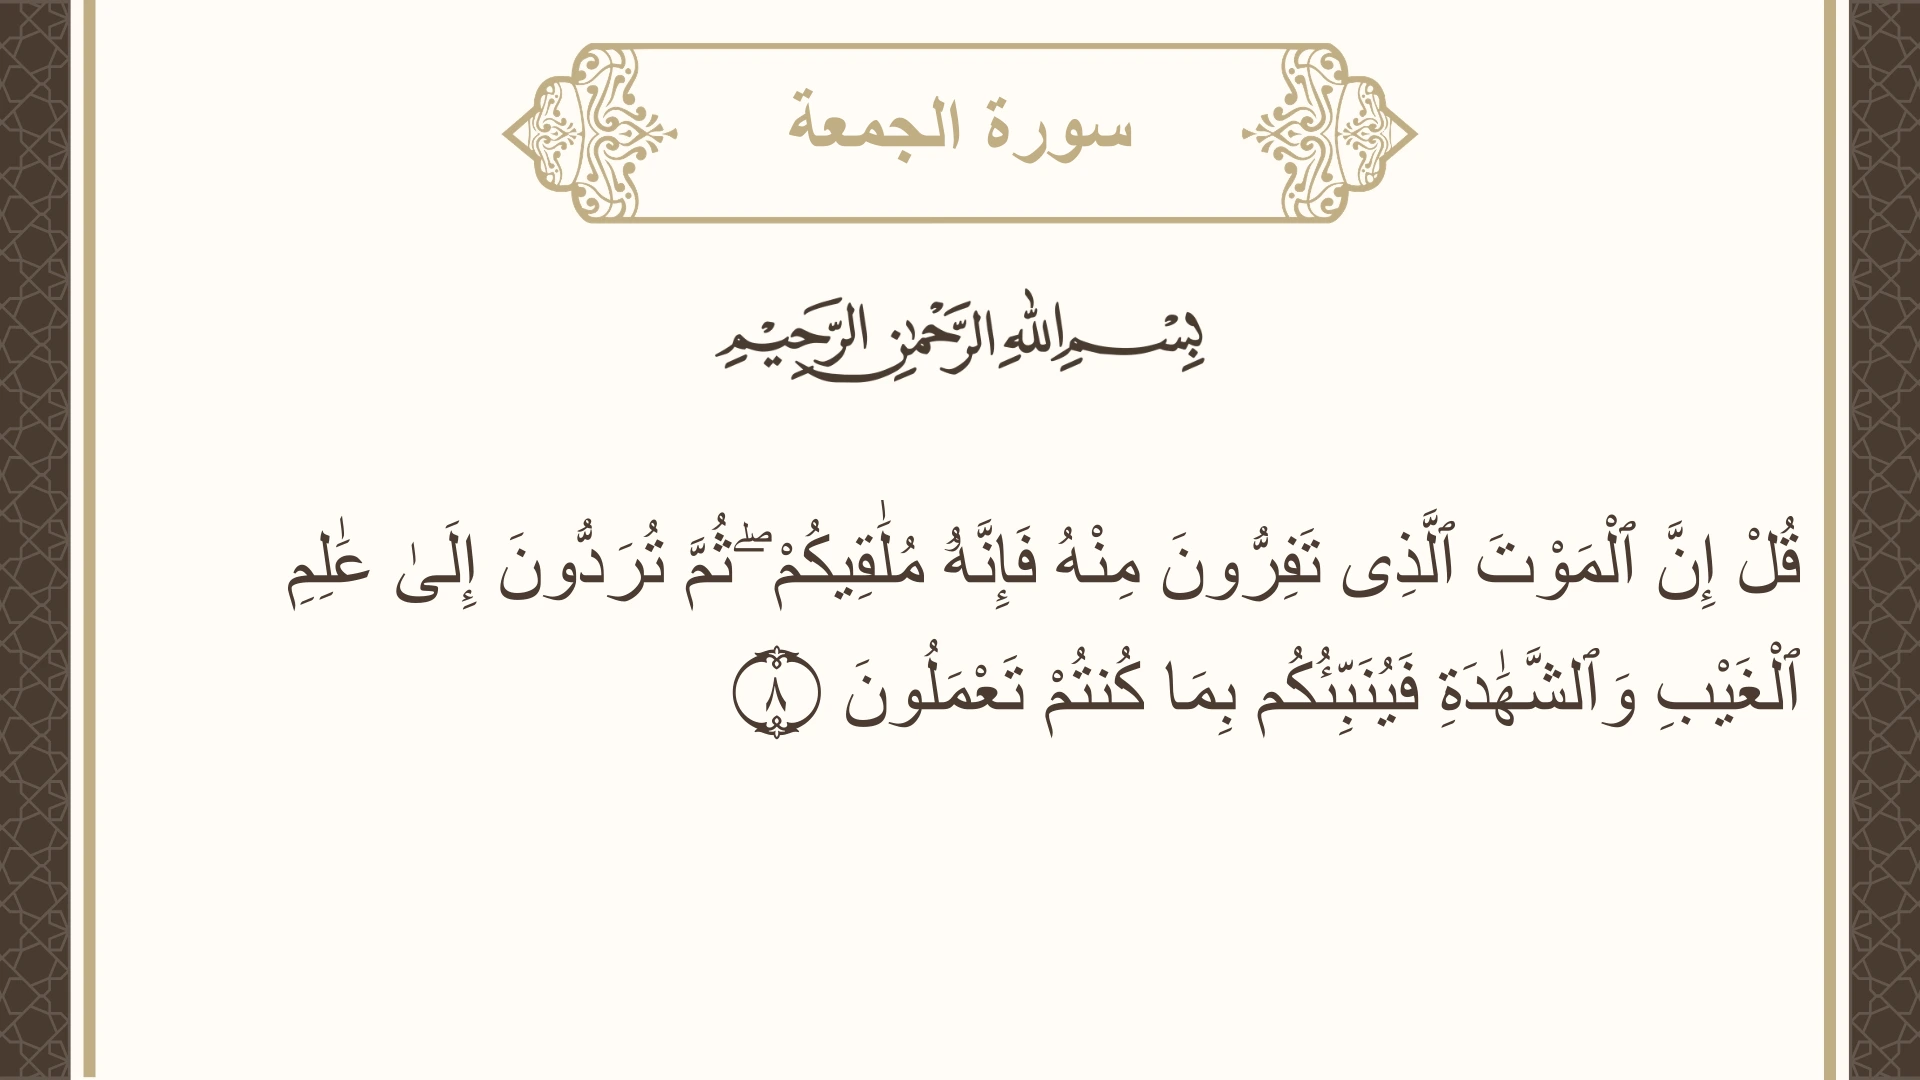 سورة الجمعة
بِسْمِ اللهِ الرَّحْمٰنِ الرَّحِيْمِ
قُلْ إِنَّ ٱلْمَوْتَ ٱلَّذِى تَفِرُّونَ مِنْهُ فَإِنَّهُۥ مُلَٰقِيكُمْ ۖ ثُمَّ تُرَدُّونَ إِلَىٰ عَٰلِمِ
ٱلْغَيْبِ وَٱلشَّهَٰدَةِ فَيُنَبِّئُكُم بِمَا كُنتُمْ تَعْمَلُونَ ٨